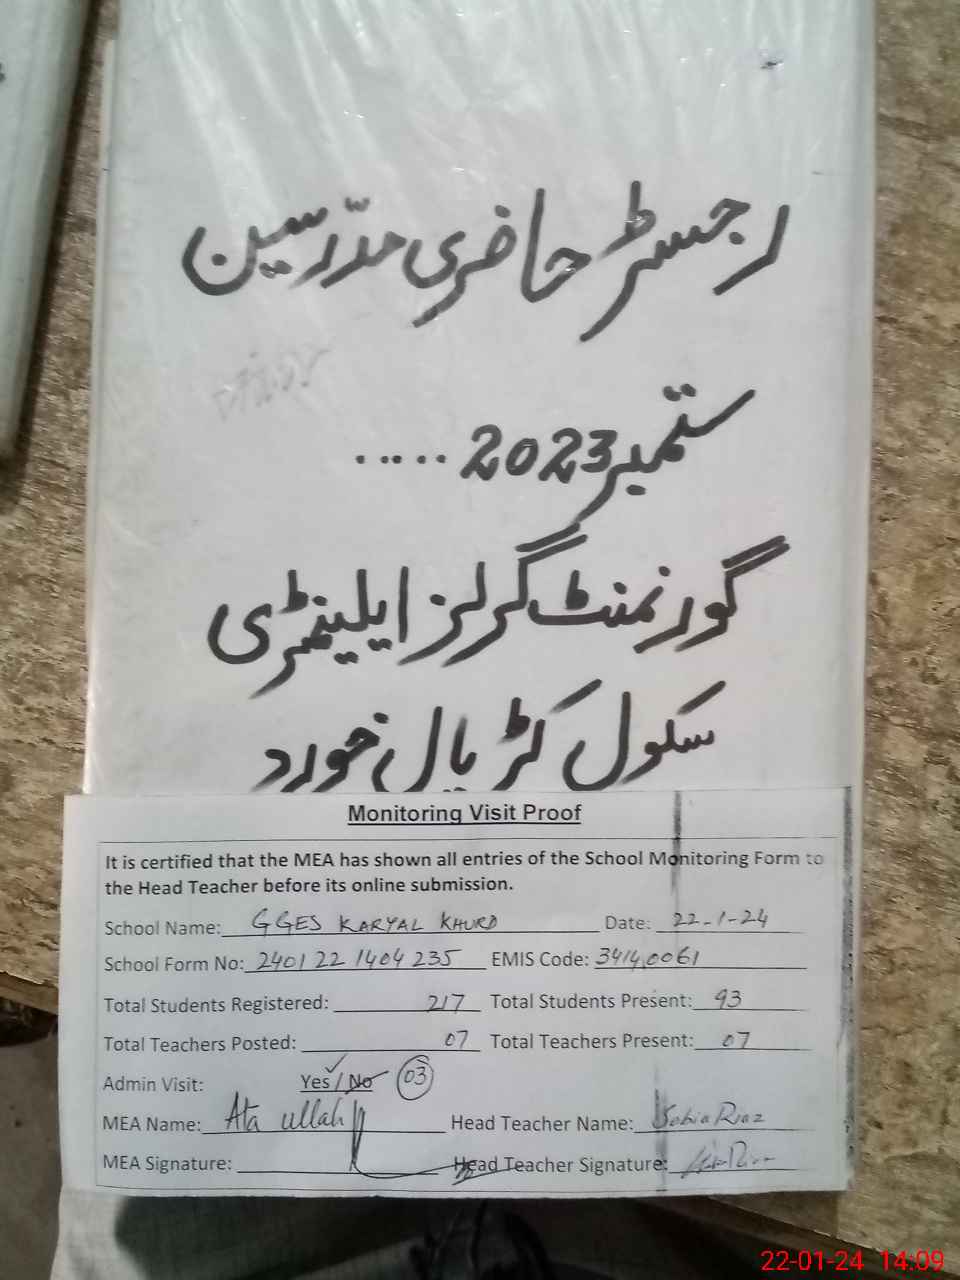 رجسٹر حاضری مدرّسین
ستمبر 2023 .....
گورنمنٹ گرلز ایلیمنٹری
سکول کڑیال خورد
Monitoring Visit Proof
It is certified that the MEA has shown all entries of the School Monitoring Form to
the Head Teacher before its online submission.
School Name: GGES KARYAL KHURD Date: 22-1-24
School Form No: 2401221404235 EMIS Code: 34140061
Total Students Registered: 217 Total Students Present: 93
Total Teachers Posted: 07 Total Teachers Present: 07
Admin Visit: Yes / No 03
MEA Name: Ata ullah Head Teacher Name: Sobia Riaz
MEA Signature: Head Teacher Signature:
22-01-24 14:09